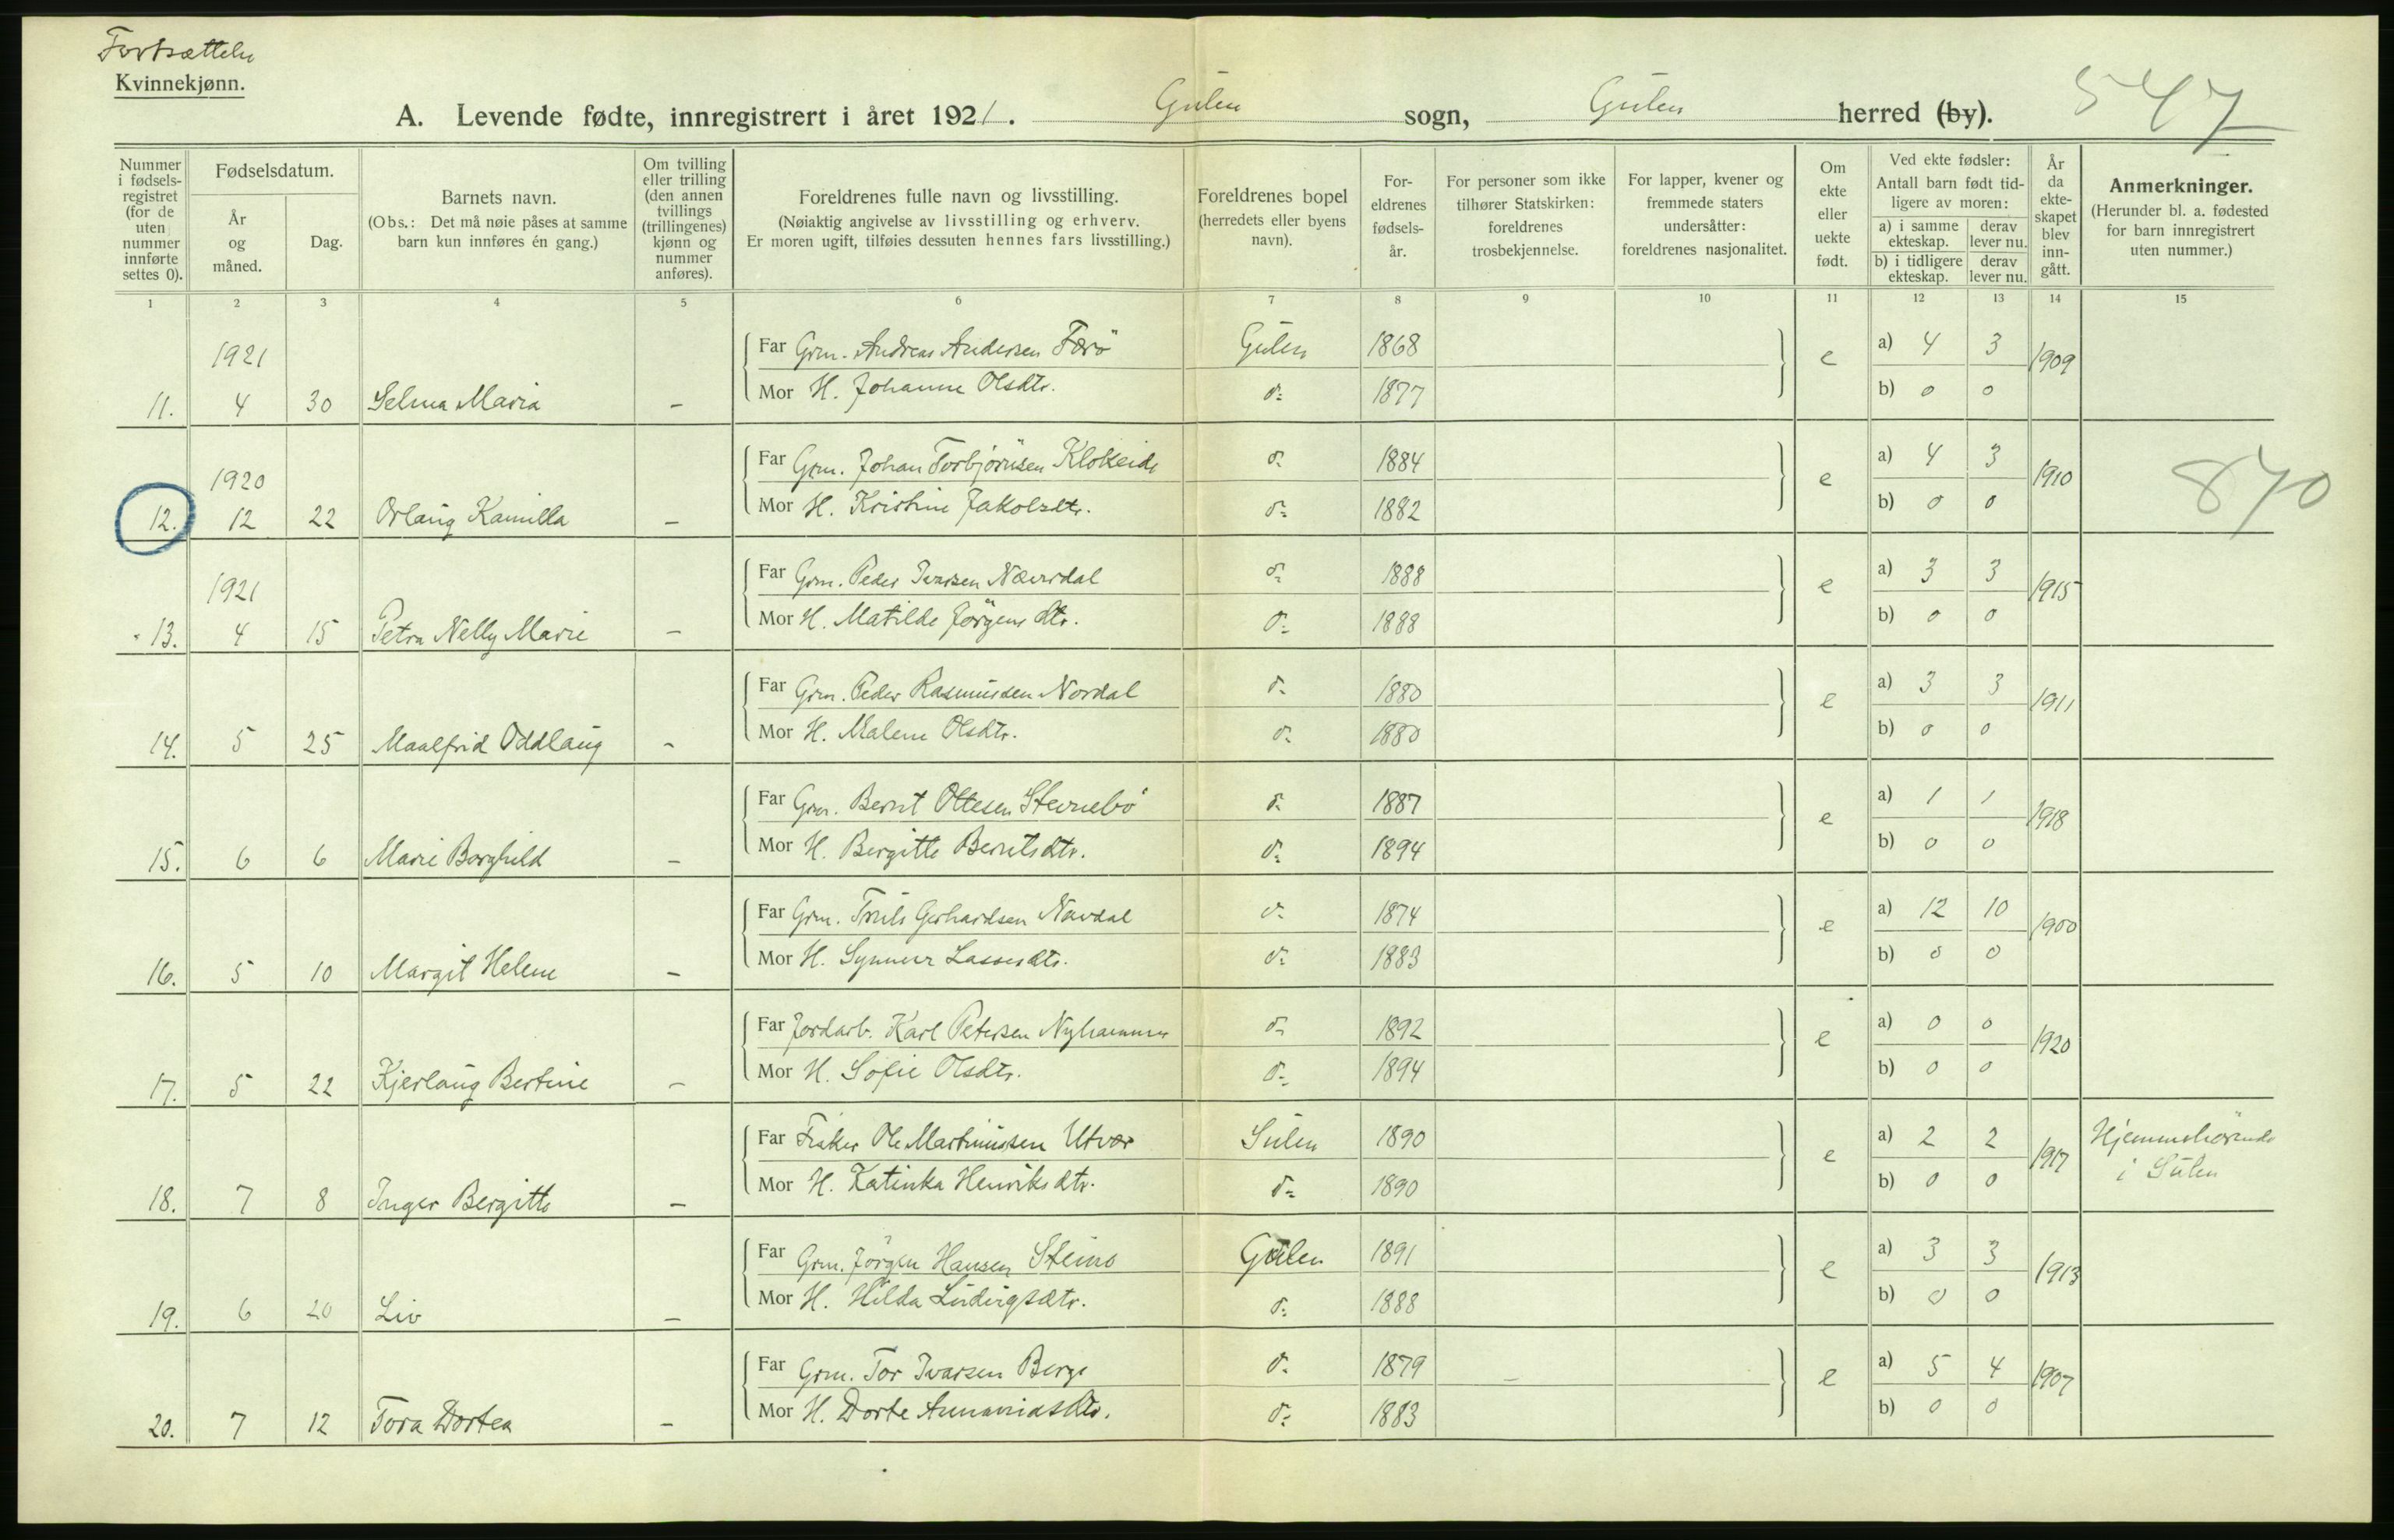 Fortsættelse
Kvinnekjønn.
A. Levende fødte, innregistrert i året 1921. Gulen sogn, Gulen herred (by). 547
Nummer i fødselsregistret (for de uten nummer innførte settes 0).
Fødselsdatum.
År og måned.
Dag.
Barnets navn.
(Obs.: Det må nøie påses at samme barn kun innføres én gang.)
Om tvilling eller trilling (den annen tvillings (trillingenes) kjønn og nummer anføres).
Foreldrenes fulle navn og livsstilling.
(Nøiaktig angivelse av livsstilling og erhverv.
Er moren ugift, tilføies dessuten hennes fars livsstilling.)
Foreldrenes bopel (herredets eller byens navn).
Foreldrenes fødselsår.
For personer som ikke tilhører Statskirken: foreldrenes trosbekjennelse.
For lapper, kvener og fremmede staters undersåtter: foreldrenes nasjonalitet.
Om ekte eller uekte født.
Ved ekte fødsler: Antall barn født tidligere av moren:
a) i samme ekteskap. derav lever nu.
b) i tidligere ekteskap. derav lever nu.
År da ekteskapet blev inngått.
Anmerkninger.
(Herunder bl. a. fødested for barn innregistrert uten nummer.)
1 2 3 4 5 6 7 8 9 10 11 12 13 14 15
1921
Far Grm. Andreas Andersen Færö Gulen 1868 e a) 4 3 1909
11. 4 30 Selma Maria - Mor H. Johanne Olsdtr. d: 1877 b) 0 0
1920
Far Grm. Johan Torbjörnsen Klokeide d: 1884 e a) 4 3 1910 870
12. 12 22 Orlaug Kamilla - Mor H. Kristine Jakobsdtr. d: 1882 b) 0 0
1921
Far Grm. Peder Ivarsen Nævrdal d: 1888 e a) 3 3 1915
13. 4 15 Petra Nelly Marie - Mor H. Matilde Jörgensdtr. d: 1888 b) 0 0
Far Grm. Peder Rasmussen Nordal d: 1880 e a) 3 3 1911
14. 5 25 Maalfrid Oddlaug - Mor H. Malene Olsdtr. d: 1880 b) 0 0
Far Grm. Bernt Ottesen Stevnebö d: 1887 e a) 1 1 1918
15. 6 6 Marie Borghild - Mor H. Bergitte Berntsdtr. d: 1894 b) 0 0
Far Grm. Truls Gerhardsen Navdal d: 1874 e a) 12 10 1900
16. 5 10 Margit Helene - Mor H. Synneve Lassesdtr. d: 1883 b) 0 0
Far Jordarb. Karl Petersen Nyhammer d: 1892 e a) 0 0 1920
17. 5 22 Kjerlaug Bertine - Mor H. Sofie Olsdtr. d: 1894 b) 0 0
Far Fisker Ole Martinussen Utvær Sulen 1890 e a) 2 2 1917 Hjemmehörende
18. 7 8 Inger Bergitte - Mor H. Katinka Henriksdtr. d: 1890 b) 0 0 i Sulen
Far Grm. Jörgen Hansen Steine Gulen 1891 e a) 3 3 1913
19. 6 20 Liv - Mor H. Hilda Ludvigsdtr. d: 1888 b) 0 0
Far Grm. Tor Ivarsen Berge d: 1879 - e a) 5 4 1907
20. 7 12 Tora Dortea - Mor H. Dorte d: 1883 b) 0 0